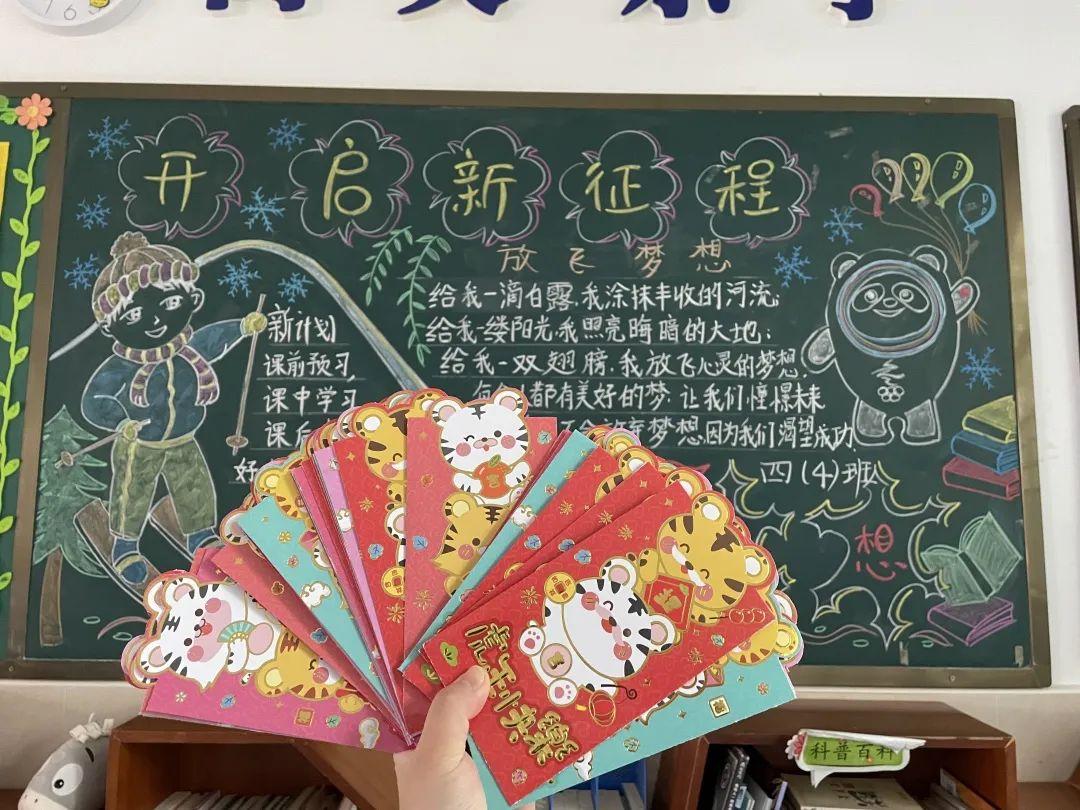 开启新征程
放飞梦想
给我一滴白露,我涂抹丰收的河流;
给我一缕阳光,我照亮晦暗的大地;
给我一双翅膀,我放飞心灵的梦想,
都有美好的梦,让我们憧憬未来
梦想因为我们渴望成功
四(4)班
新计划
课前预习
课中学习
课后
好
想
虎年快乐
科普百科